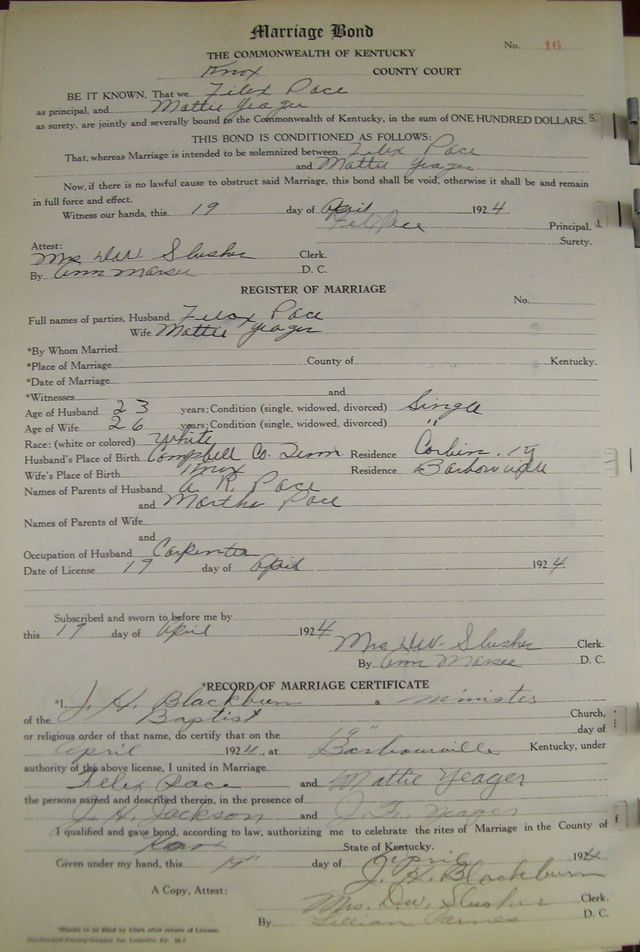 Marriage Bond
No. 16
THE COMMONWEALTH OF KENTUCKY
Knox COUNTY COURT
BE IT KNOWN, That we Filex Pace
as principal, and Mattie Yeager
as surety, are jointly and severally bound to the Commonwealth of Kentucky, in the sum of ONE HUNDRED DOLLARS.
THIS BOND IS CONDITIONED AS FOLLOWS:
That, whereas Marriage is intended to be solemnized between Filex Pace
and Mattie Yeager
Now, if there is no lawful cause to obstruct said Marriage, this bond shall be void, otherwise it shall be and remain
in full force and effect.
Witness our hands, this 19 day of April 1924.
Principal.
Surety.
Attest:
Mrs D.W. Slusher Clerk.
By Ann Marsee D. C.
REGISTER OF MARRIAGE
No.
Full names of parties, Husband Filex Pace
Wife Mattie Yeager
*By Whom Married
*Place of Marriage County of Kentucky.
*Date of Marriage
*Witnesses and
Age of Husband 23 years; Condition (single, widowed, divorced) Single
Age of Wife 26 years; Condition (single, widowed, divorced) "
Race: (white or colored) White
Husband's Place of Birth Campbell Co. Tenn Residence Corbin, Ky
Wife's Place of Birth Knox Residence Barbourville
Names of Parents of Husband A. R. Pace
and Martha Pace
Names of Parents of Wife
and
Occupation of Husband Carpenter
Date of License 19 day of April 1924.
Subscribed and sworn to before me by
this 19 day of April 1924
Mrs D.W. Slusher Clerk.
By Ann Marsee D. C.
*RECORD OF MARRIAGE CERTIFICATE
*I, J. H. Blackburn a minister
of the Baptist Church,
or religious order of that name, do certify that on the 19" day of
April 1924, at Barbourville Kentucky, under
authority of the above license, I united in Marriage
Felix Pace and Mattie Yeager
the persons named and described therein, in the presence of
J. H. Jackson and J. F. Yeager
I qualified and gave bond, according to law, authorizing me to celebrate the rites of Marriage in the County of
Knox State of Kentucky.
Given under my hand, this 19" day of April 1924
J. H. Blackburn
A Copy, Attest: Mrs. D.W. Slusher Clerk.
By Lillian D. C.
*Blanks to be filled by Clerk after return of License.